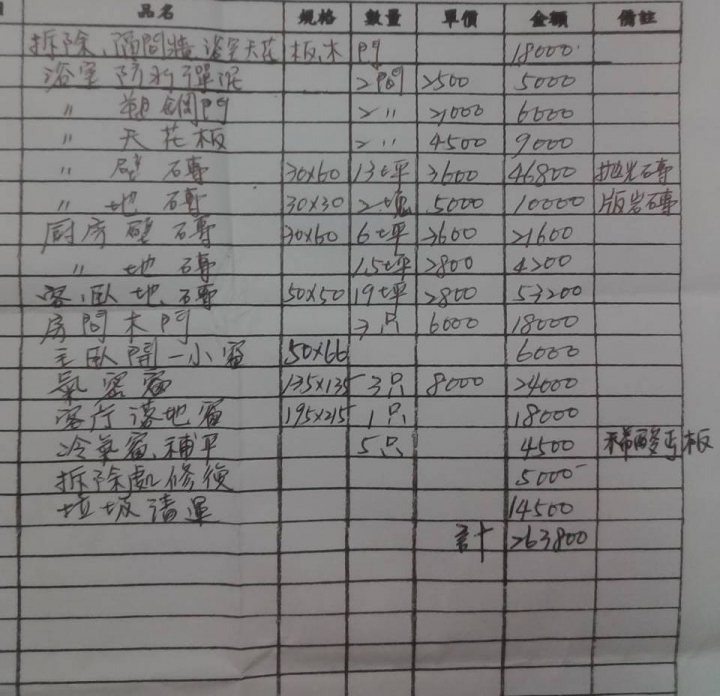 品名 規格 數量 單價 金額 備註
拆除、隔間牆、浴室天花板、木門 18000
浴室防水彈泥 2間 2500 5000
〃 塑鋼門 2〃 3000 6000
〃 天花板 2〃 4500 9000
〃 壁磚 30x60 13坪 3600 46800 拋岩磚
〃 地磚 30x30 2塊 5000 10000 版岩磚
厨房壁磚 30x60 6坪 3600 21600
〃 地磚 1.5坪 2800 4200
客、臥地磚 50x50 19坪 2800 53200
房間木門 3只 6000 18000
主臥開一小窗 50x66 6000
氣密窗 135x135 3只 8000 24000
客厅落地窗 195x215 1只 18000
冷氣窗、補平 5只 4500 酸鈣板
拆除處修復 5000
垃圾清運 14500
計 263800